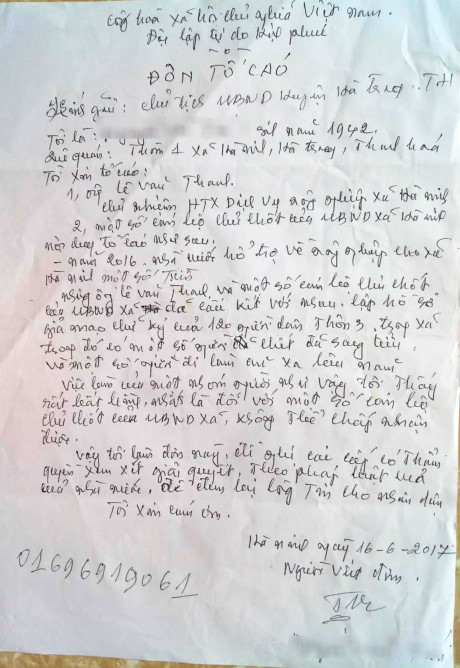 Cộng hoà xã hội chủ nghĩa Việt Nam.
Độc lập tự do hạnh phúc
ĐƠN TỐ CÁO
Kính gửi: Chủ tịch UBND huyện Hà Trung. TH
Tôi là: sinh năm 1942.
Quê quán: Thôn 1 xã Hà Ninh, Hà Trung, Thanh Hoá
Tôi xin tố cáo:
1, ông Lê Văn Thanh.
Chủ nhiệm HTX Dịch vụ nông nghiệp xã Hà Ninh
2, một số cán bộ chủ chốt của UBND xã Hà Ninh
nội dung tố cáo như sau:
- năm 2016. nhà nước hỗ trợ về nông nghiệp cho xã
Hà Ninh một số tiền
nhưng ông Lê Văn Thanh và một số cán bộ chủ chốt
của UBND xã đã câu kết với nhau. lập hồ sơ
giả mạo chữ ký của 120 người dân thôn 3. trong xã
trong đó có một số người chết đã sang tiểu,
và một số người đi làm ăn xa lâu năm
Việc làm của một nhóm người như vậy tôi thấy
rất bất bình, nhất là đối với một số cán bộ
chủ chốt của UBND xã, không thể chấp nhận
được.
vậy tôi làm đơn này, đề nghị các cấp có thẩm
quyền xem xét giải quyết, theo pháp luật
của nhà nước, để đem lại lòng tin cho nhân dân
Tôi xin cảm ơn.
Hà Ninh ngày 16-6-2017
Người viết đơn.
01696919061